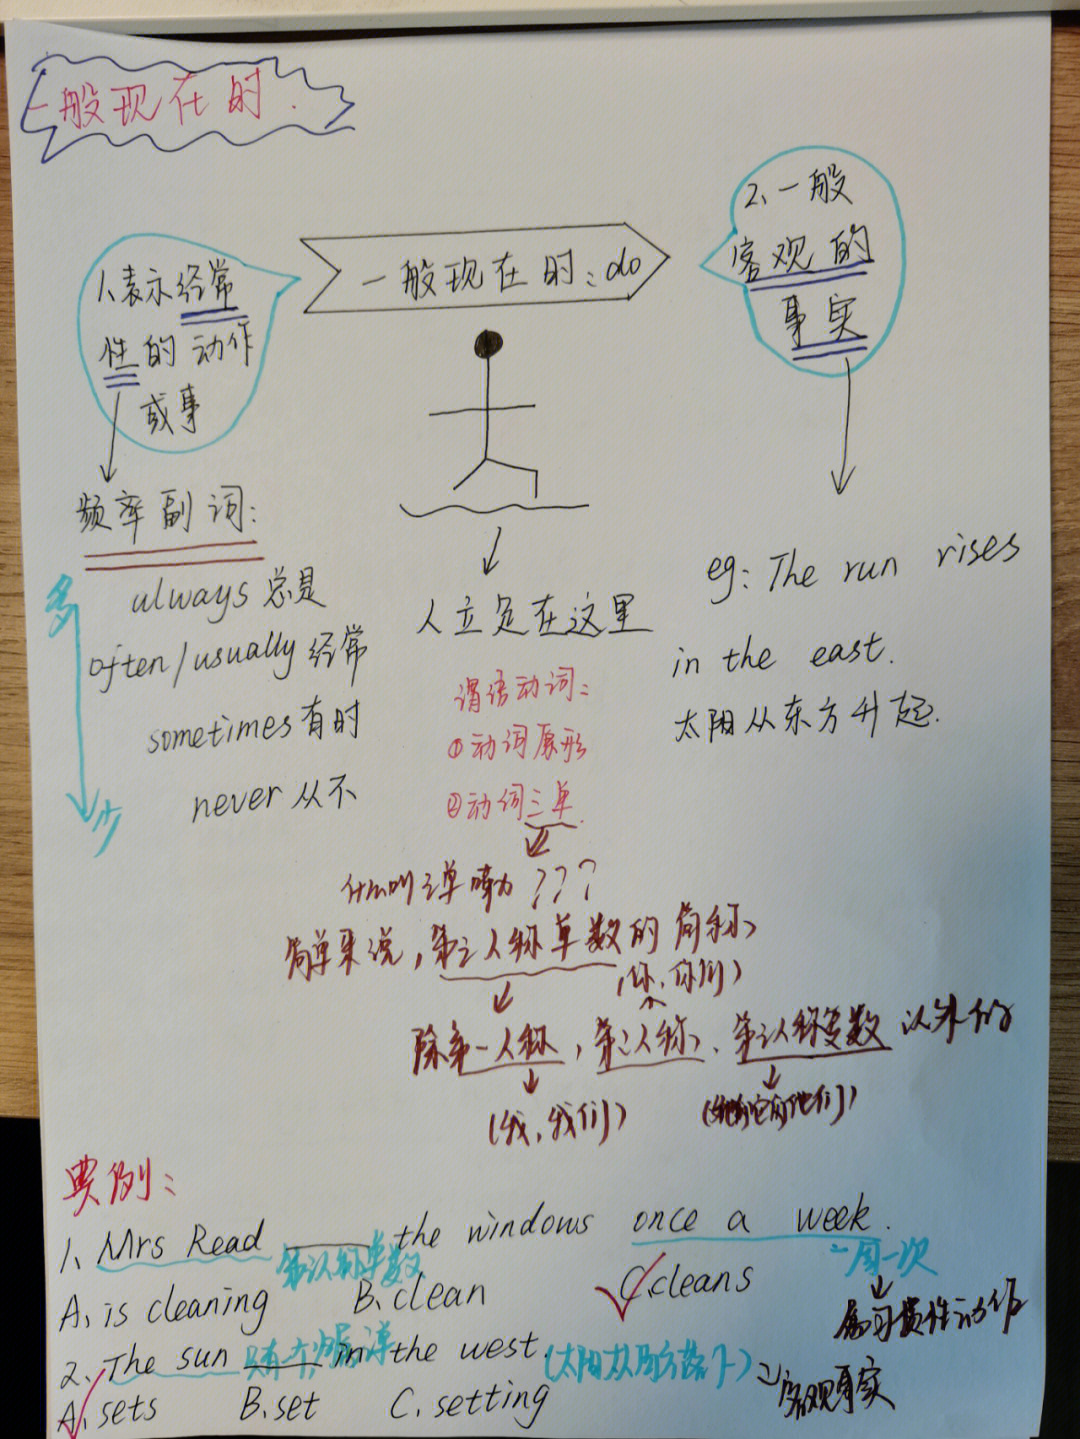 一般现在时.
一般现在时:do
1、表示经常
性的动作
或事
2、一般
客观的
事实
频率副词:
多
always 总是
often/usually 经常
sometimes 有时
never 从不
少
人立定在这里
谓语动词:
①动词原形
②动词三单.
eg: The run rises
in the east.
太阳从东方升起.
什么叫三单呢 ???
简单来说,第三人称单数的简称、
(你,你们)
除第一人称,第二人称、第三人称复数以外的
(我,我们)
典例:
1、Mrs Read ____ the windows once a week.
第三人称单数
=一周一次
A. is cleaning B. clean C. cleans
属习惯性动作
2、The sun ____ in the west.
(太阳从西方落下)
=客观事实
A. sets B. set C. setting